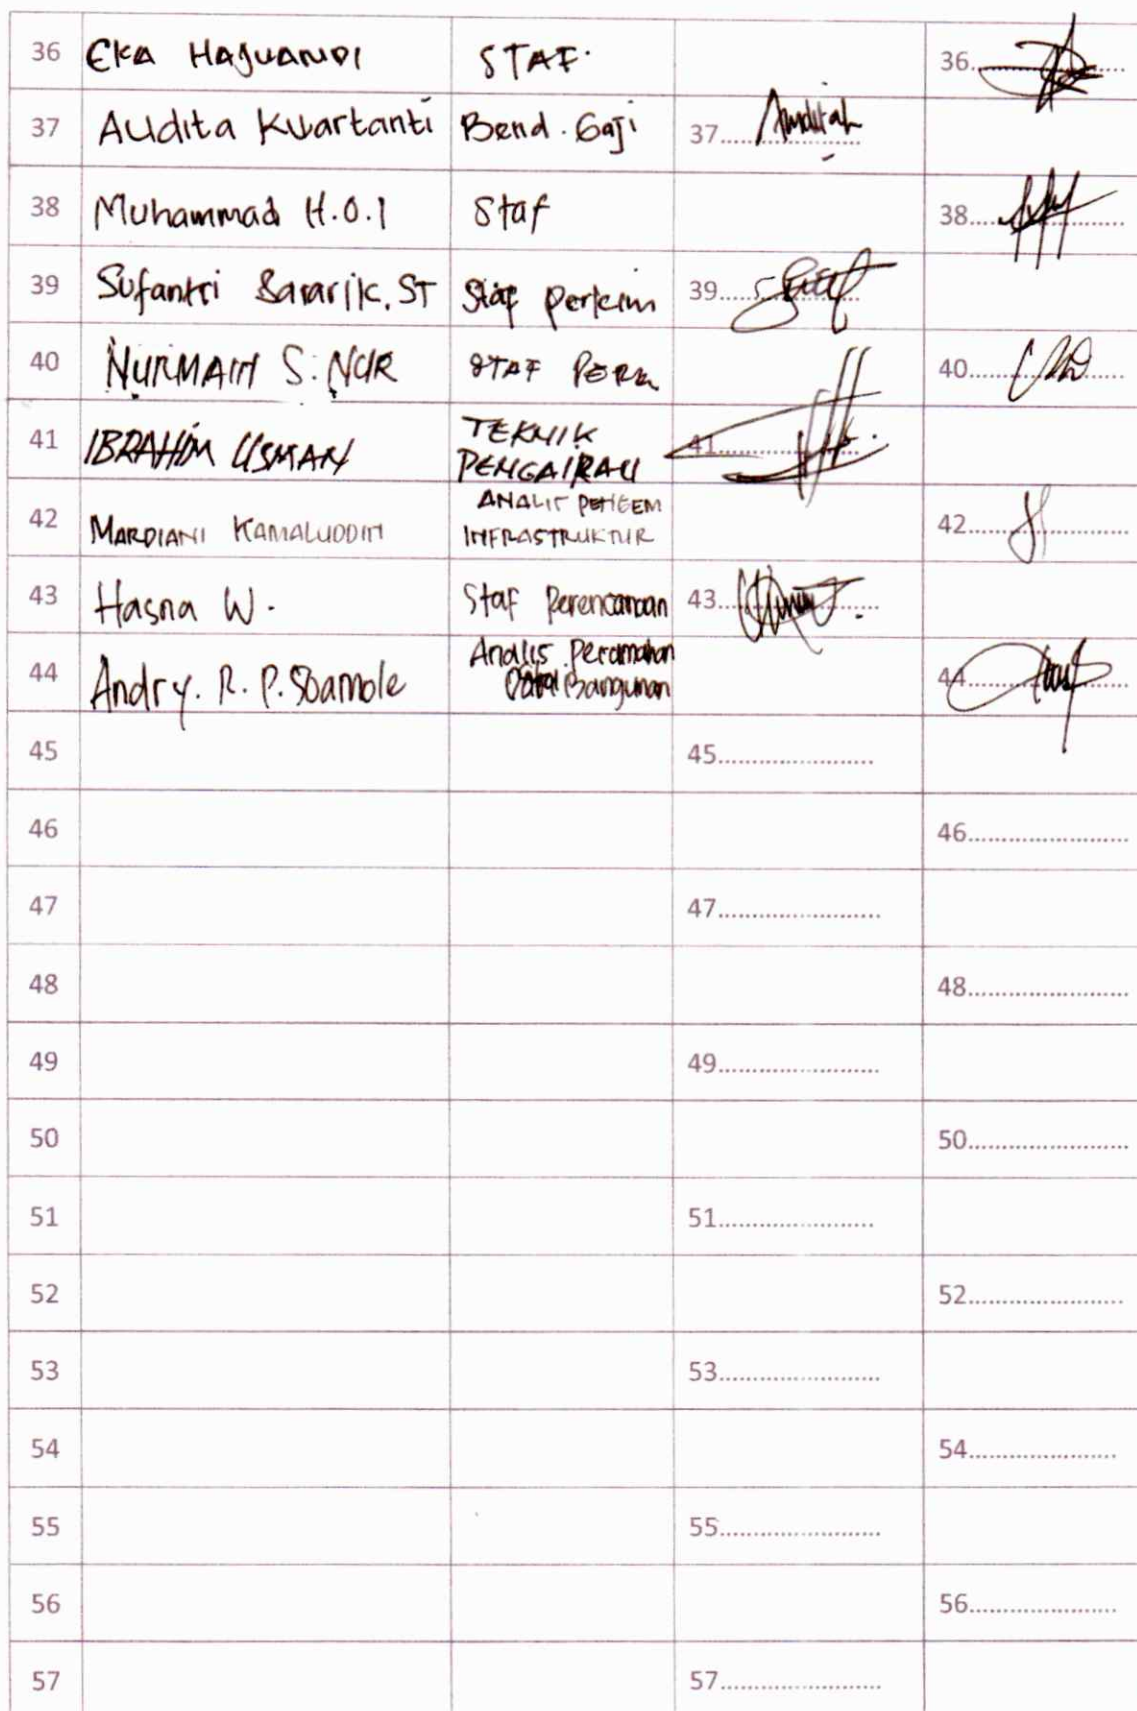 36 EKA STAF. 36
37 Audita Kwartanti Bend. Gaji 37
38 Muhammad H.O.I Staf 38
39 Sufantri ST Staf Perkim 39
40 NURMAIN S. NUR STAF 40
41 IBRAHIM USMAN TEKNIK 41
PENGAIRAN
42 MARDIANI KAMALUDDIN ANALIS 42
INFRASTRUKTUR
43 Hasna W. Staf Perencanaan 43
44 Andry. R. P. Analis 44
Bangunan
45 45
46 46
47 47
48 48
49 49
50 50
51 51
52 52
53 53
54 54
55 55
56 56
57 57